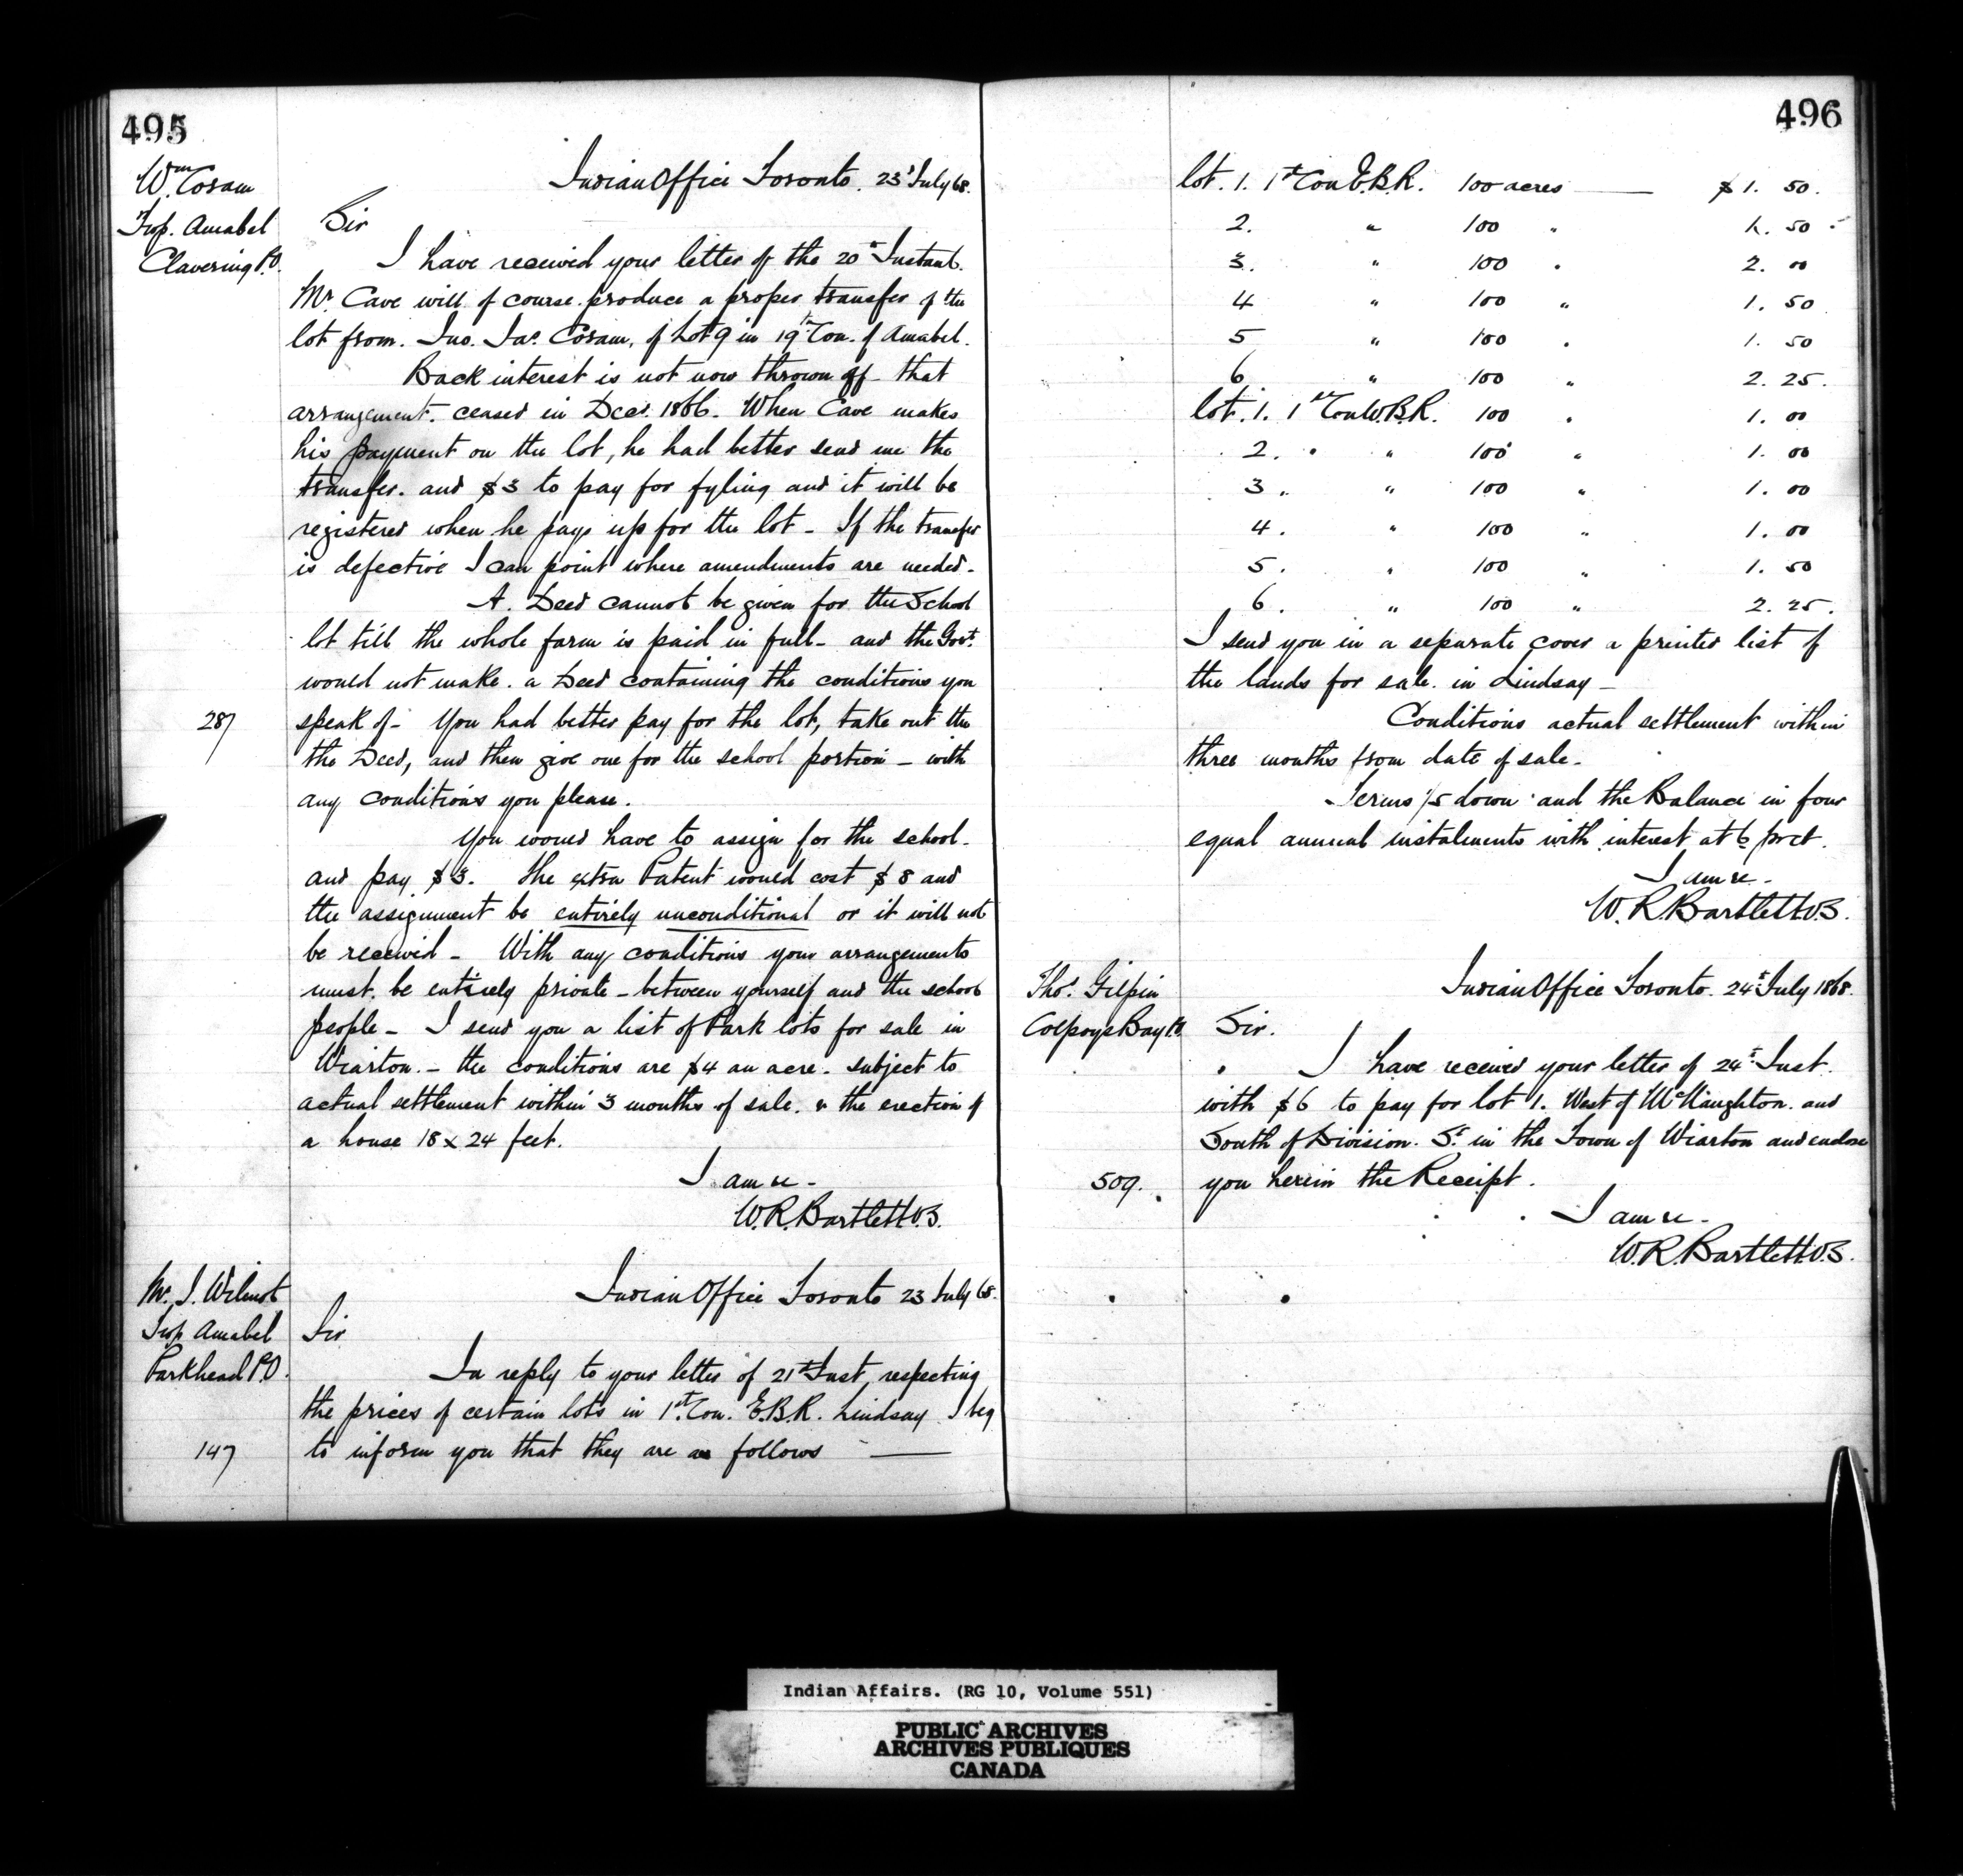 495
Wm Cosam
Twp. Amabel
Clavering P.O.
Indian Office Toronto. 23d July 68.
Sir
I have received your letter of the 20th Instant.
Mr Cave will of course produce a proper transfer of the
lot from. Jno. Jas. Cosam, of Lot 9 in 19th Con. of Amabel.
Back interest is not now thrown off - that
arrangement. ceased in Decr. 1866. When Cave makes
his payment on the lot, he had better send me the
transfer. and $3 to pay for fyling and it will be
registered when he pays up for the lot - If the transfer
is defective I can point where amendments are needed -
A. Deed cannot be given for the School
lot till the whole farm is paid in full - and the Govt.
would not make. a Deed containing the conditions you
287
speak of - You had better pay for the lot, take out the
the Deed, and then give one for the school portion - with
any conditions you please.
You would have to assign for the school.
and pay $3. The extra Patent would cost $8 and
the assignment be entirely unconditional or it will not
be received - With any conditions your arrangements
must. be entirely private - between yourself and the school
people - I send you a list of Park lots for sale in
Wiarton. - the conditions are $4 an acre. subject to
actual settlement within 3 months of sale. & the erection of
a house 18 x 24 feet.
I am &c -
W.R. Bartlett V.S.
Mr. J. Wilmot
Twp Amabel
Parkhead P.O.
Indian Office Toronto 23 July 68.
Sir
In reply to your letter of 21st Inst, respecting
the prices of certain lots in 1st. Con. E.B.R. Lindsay I beg
147
to inform you that they are as follows —
496
lot. 1. 1st Con E.B.R. 100 acres — $1. 50.
2. " 100 " 1. 50.
3. " 100 " 2. 00
4 " 100 " 1. 50
5 " 100 " 1. 50
6 " 100 " 2. 25.
lot. 1. 1st Con W.B.R. 100 " 1. 00
2. " 100 " 1. 00
3 " 100 " 1. 00
4. " 100 " 1. 00
5. " 100 " 1. 50
6. " 100 " 2. 25.
I send you in a separate cover a printed list of
the lands for sale. in Lindsay -
Conditions actual settlement within
three months from date of sale.
Terms 1/5 down and the Balance in four
equal annual instalments with interest at 6 pr ct.
I am &c -
W.R. Bartlett V.S.
Thos. Gilpin
Colpoys Bay P.O.
Indian Office Toronto. 24th July 1868.
Sir.
I have received your letter of 24th Inst.
with $6 to pay for lot 1. West of McNaughton. and
South of Division. St. in the Town of Wiarton and enclose
509.
you herein the Receipt.
I am &c -
W.R. Bartlett V.S.
Indian Affairs. (RG 10, Volume 551)
PUBLIC ARCHIVES
ARCHIVES PUBLIQUES
CANADA